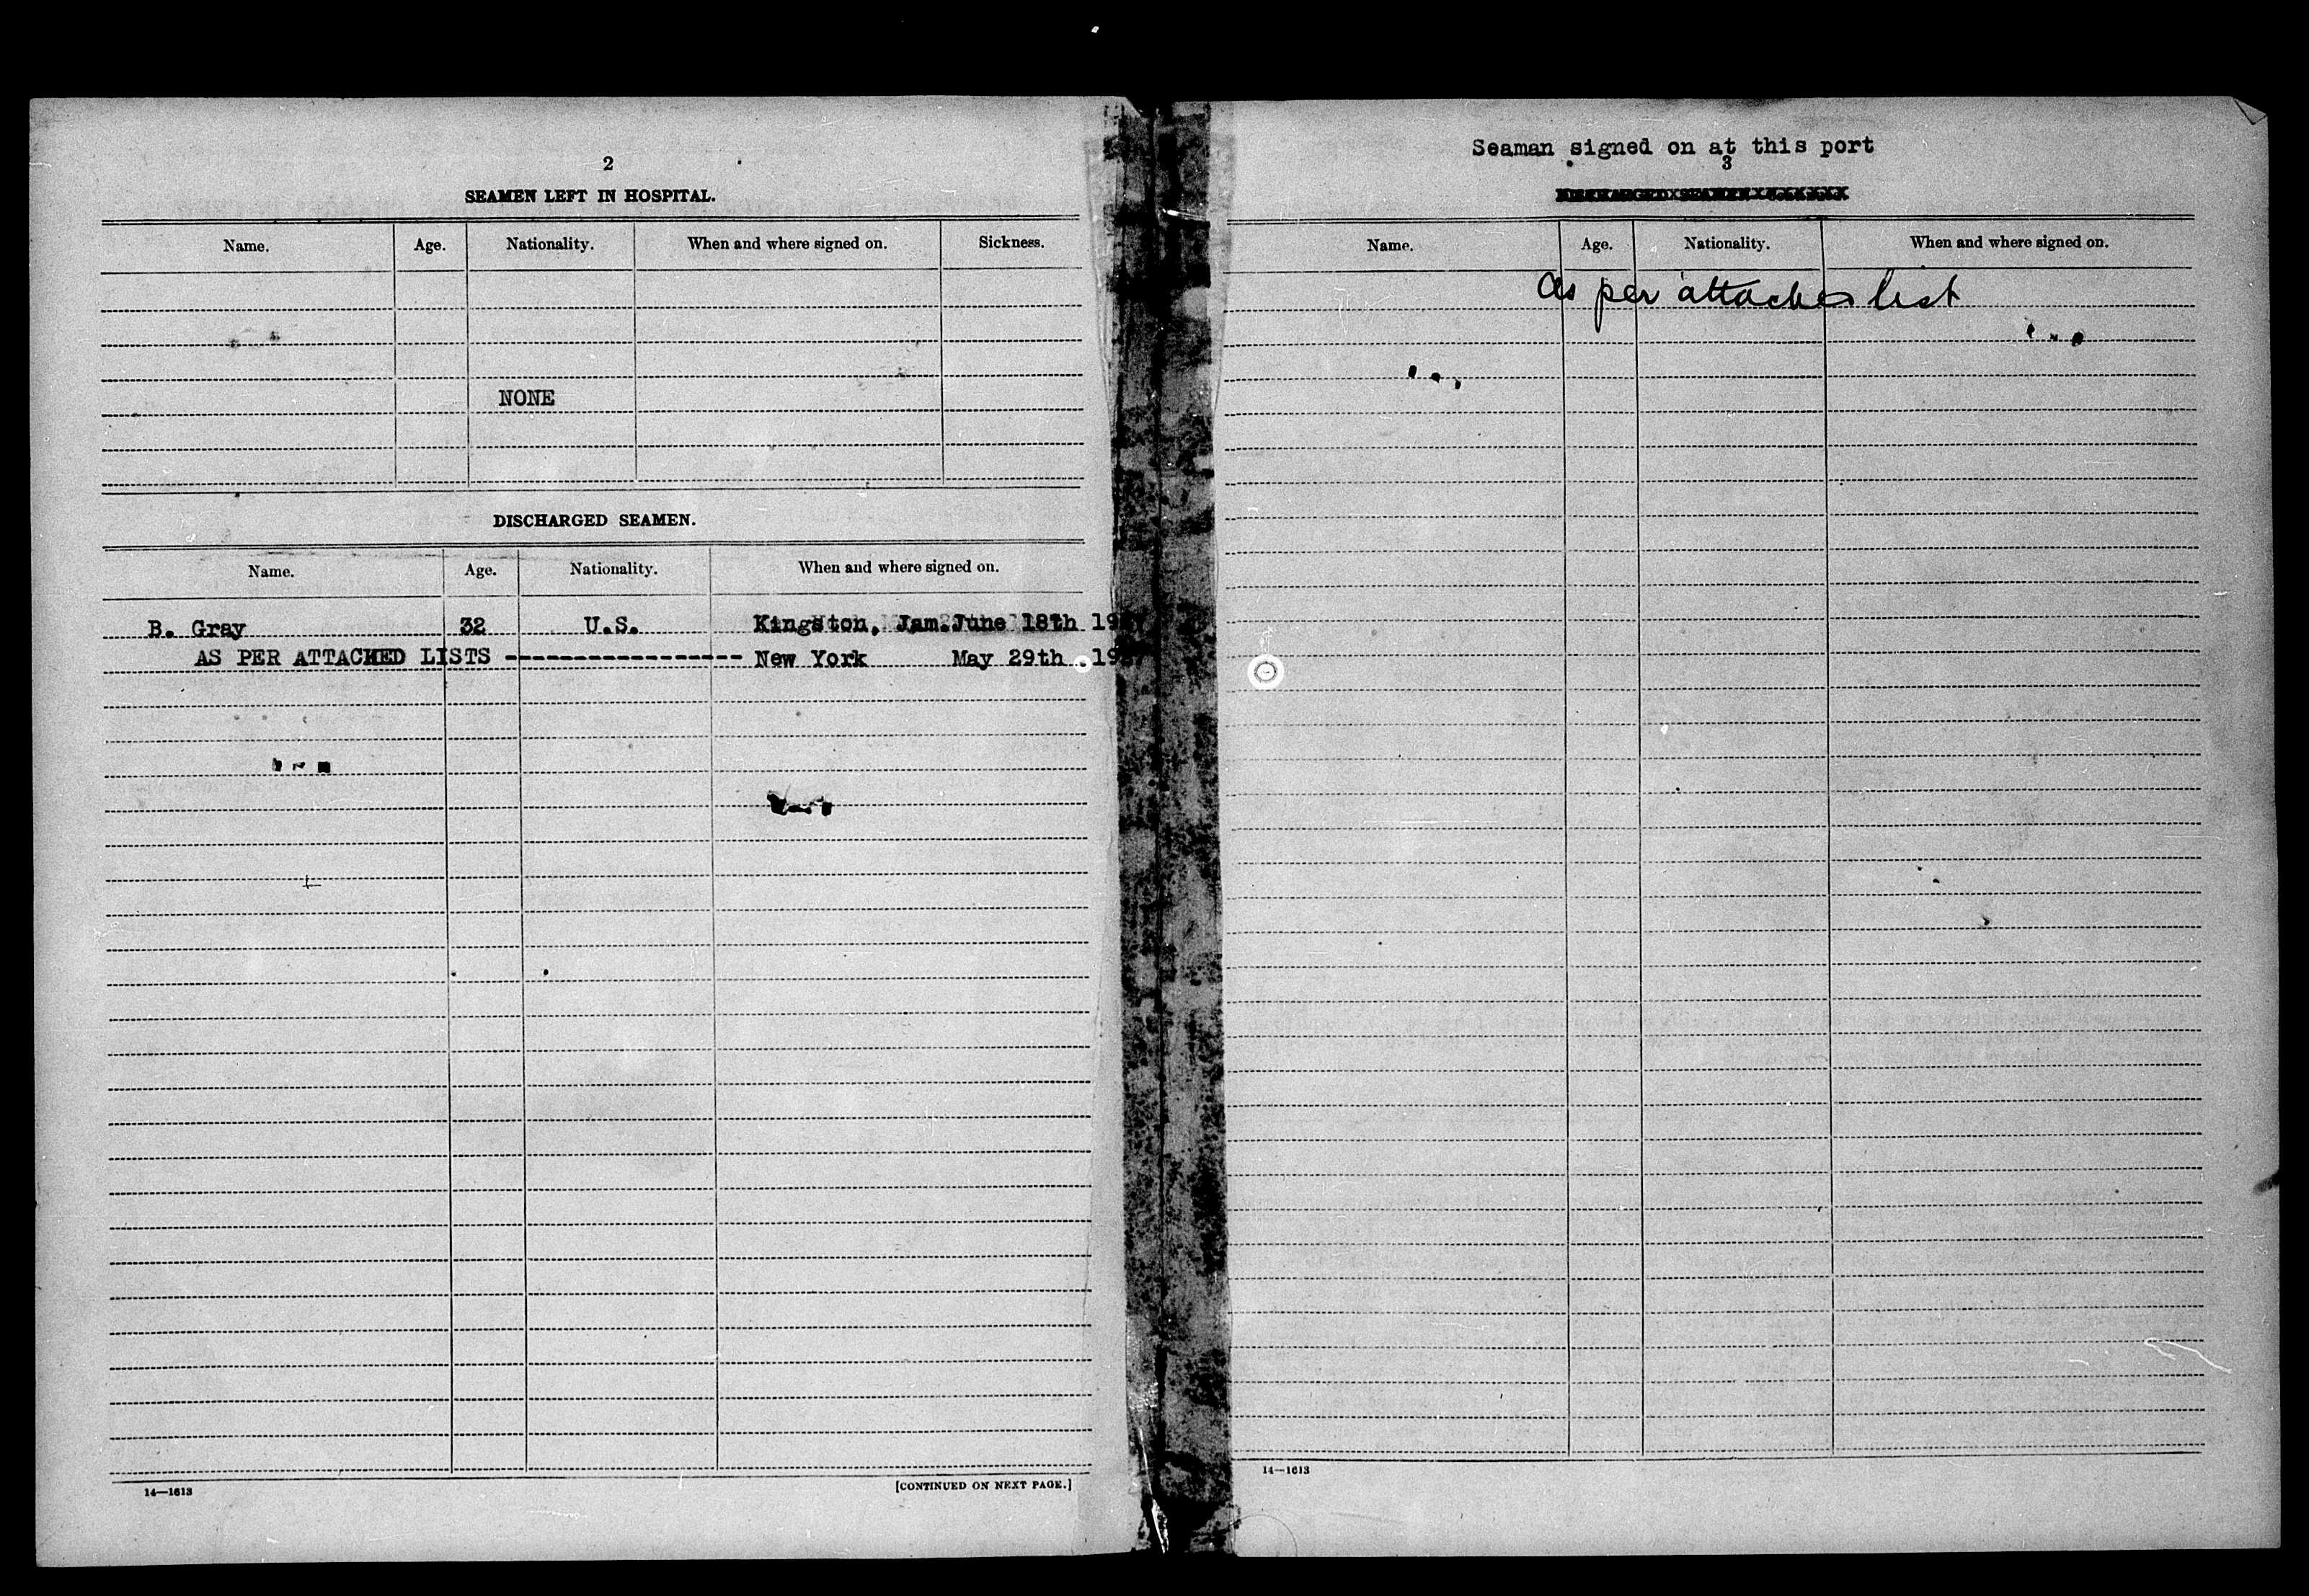 2
SEAMEN LEFT IN HOSPITAL.
Name. Age. Nationality. When and where signed on. Sickness.
NONE
DISCHARGED SEAMEN.
Name. Age. Nationality. When and where signed on.
B. Gray 32 U.S. Kingston, Jam. June 18th
AS PER ATTACHED LISTS ----------------- New York May 29th
14—1613 [CONTINUED ON NEXT PAGE.]
Seaman signed on at this port
3
Name. Age. Nationality. When and where signed on.
As per attached list
14—1613